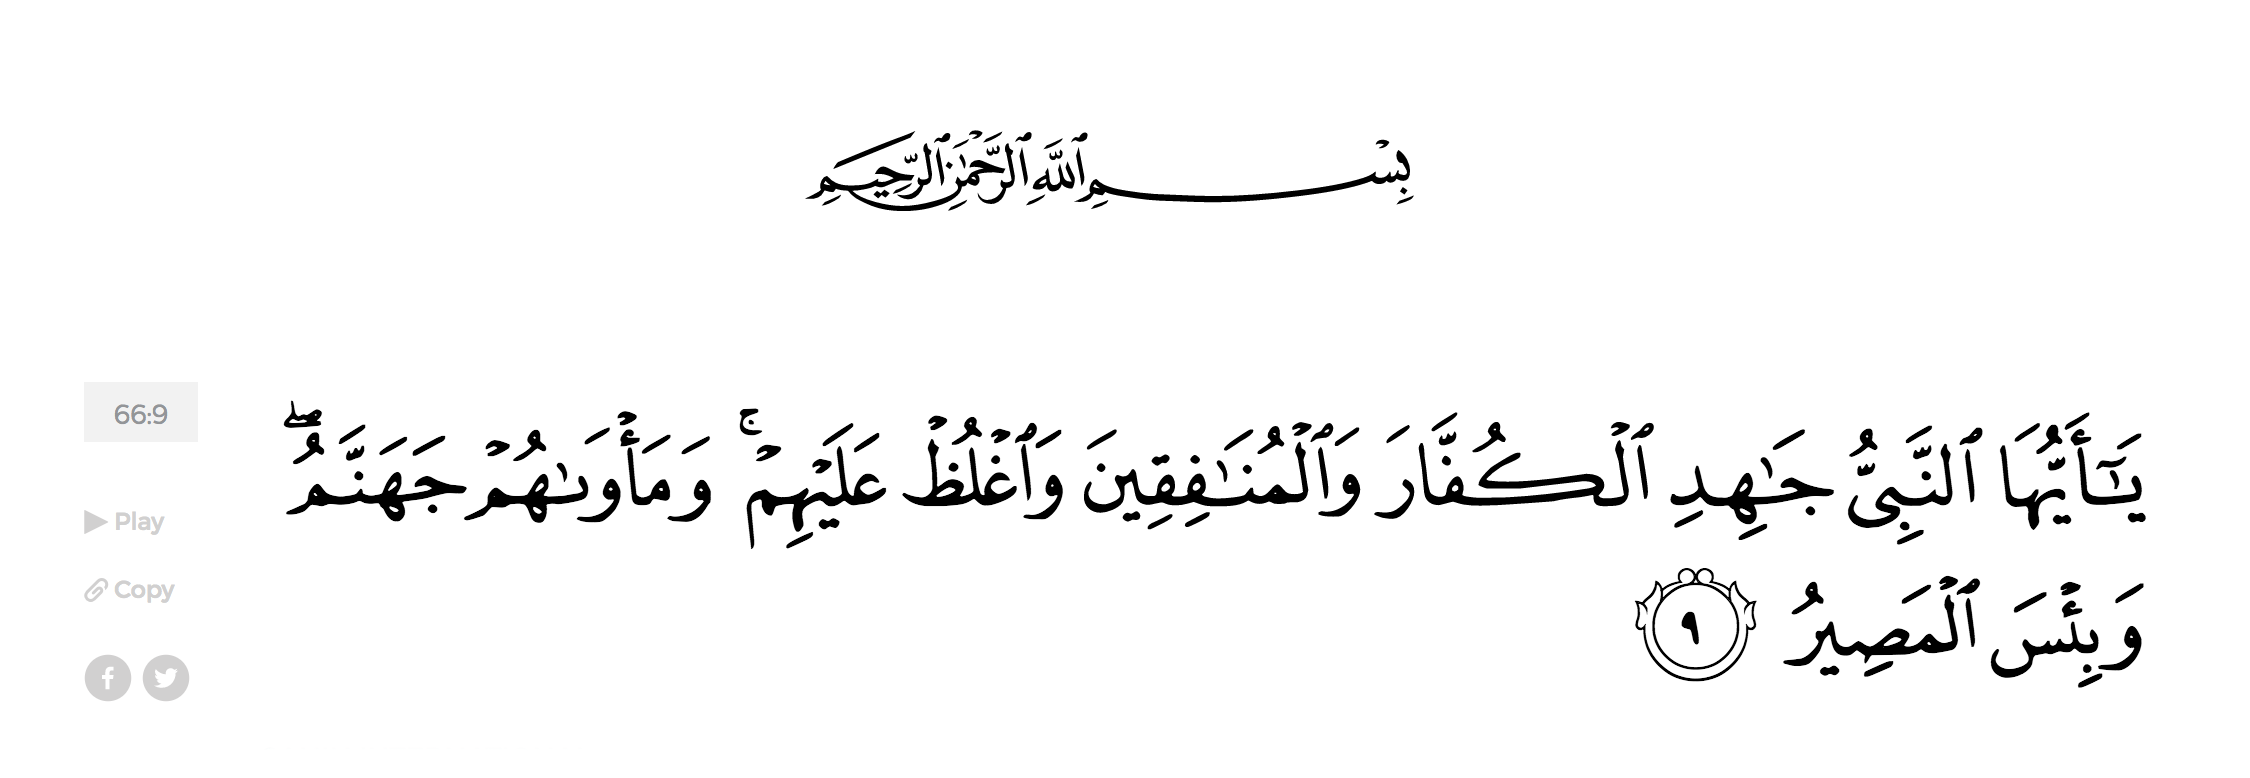 بِسْمِ ٱللَّهِ ٱلرَّحْمَٰنِ ٱلرَّحِيمِ
66:9
يَـٰٓأَيُّهَا ٱلنَّبِىُّ جَـٰهِدِ ٱلْكُفَّارَ وَٱلْمُنَـٰفِقِينَ وَٱغْلُظْ عَلَيْهِمْ ۚ وَمَأْوَىٰهُمْ جَهَنَّمُ ۖ
Play
Copy
وَبِئْسَ ٱلْمَصِيرُ ٩